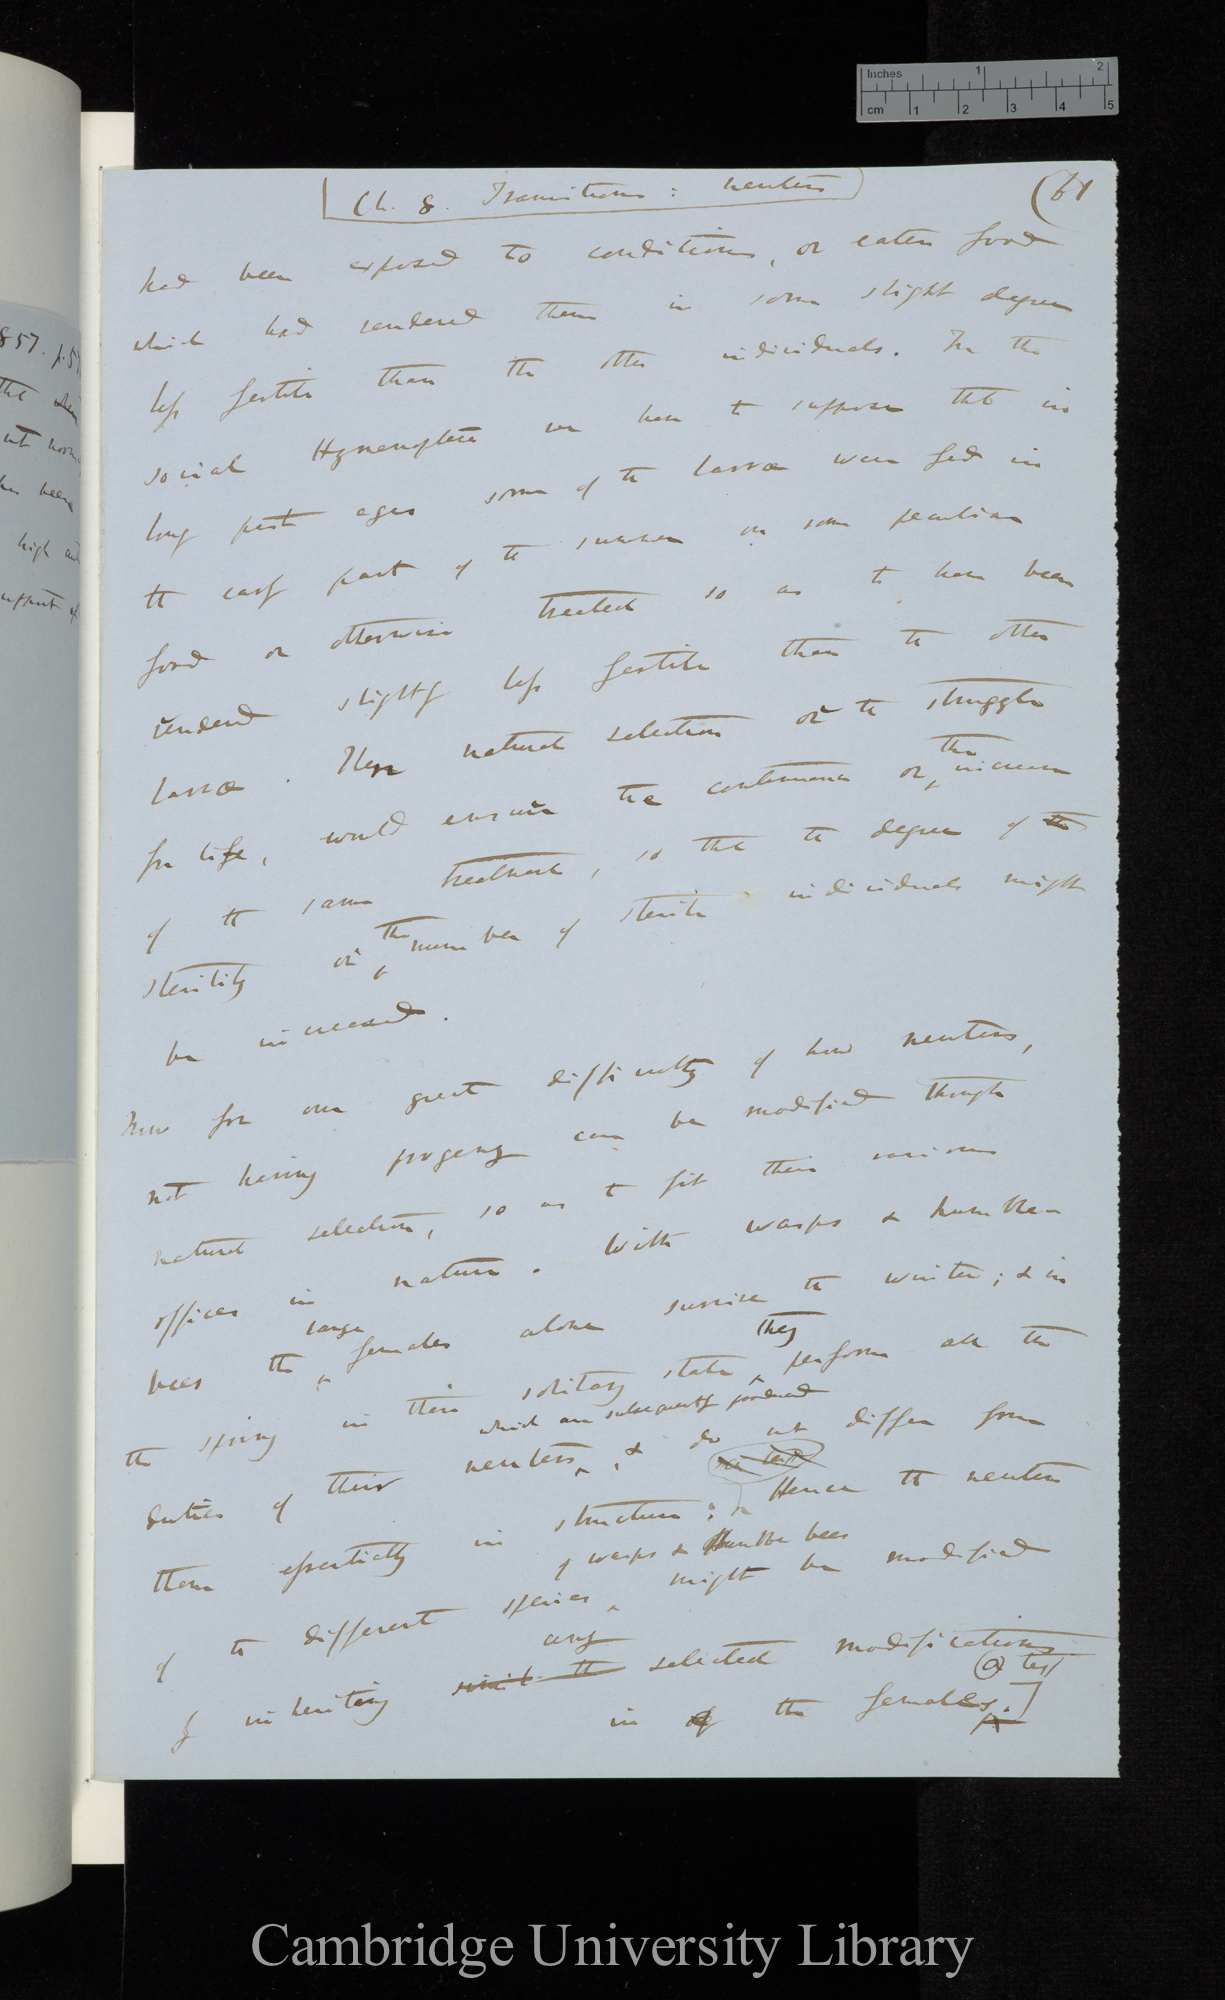 Inches 1 2
cm 1 2 3 4 5
Ch. 8. Transitions : neuters
(61
had been exposed to conditions, or eaten food
which had rendered them in some slight degree
less fertile than the other individuals. In the
social Hymenoptera we have to suppose that in
long past ages some of the larvæ were fed in
the early part of the summer on some peculiar
food or otherwise treated so as to have been
rendered slightly less fertile than the other
larvæ. Then natural selection or the struggle
for life, would ensure the continuance or the increase
of the same treatment, so that the degree of the
sterility or the number of sterile individuals might
be increased.
Now for our great difficulty of how neuters,
not having progeny can be modified through
natural selection, so as to fit their various
offices in nature. With wasps & humble-
bees the large females alone survive the winter; & in
the spring in their solitary state they perform all the
duties of their neuters, which are subsequently produced & do not differ from
them essentially in structure: Hence the neuters
of the different species of wasps & Humble bees might be modified
by inheriting any selected modifications
in of the females.]
(a) text
857. p. 5
that when
high and